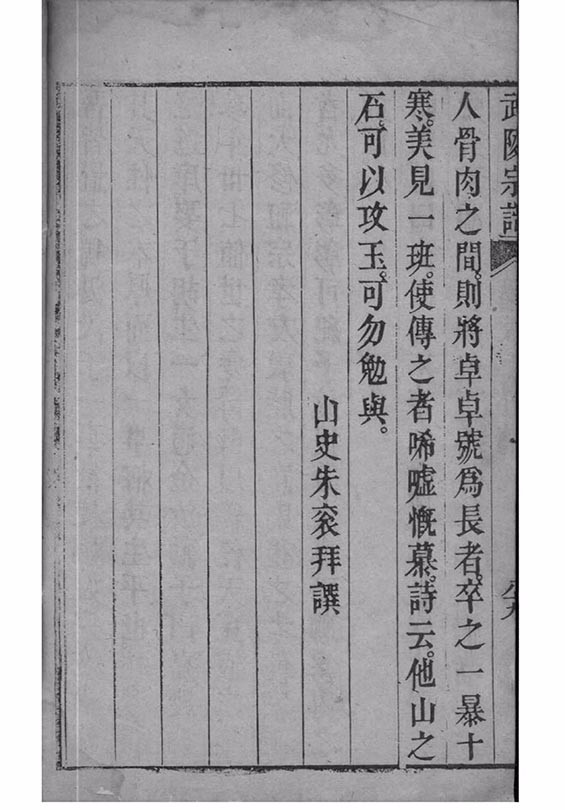 武陵宗譜
人骨肉之間。則將卓卓號爲長者。卒之一暴十
寒。美見一班。使傳之者唏噓慨慕。詩云。他山之
石。可以攻玉。可勿勉與。
山史朱衮拜譔